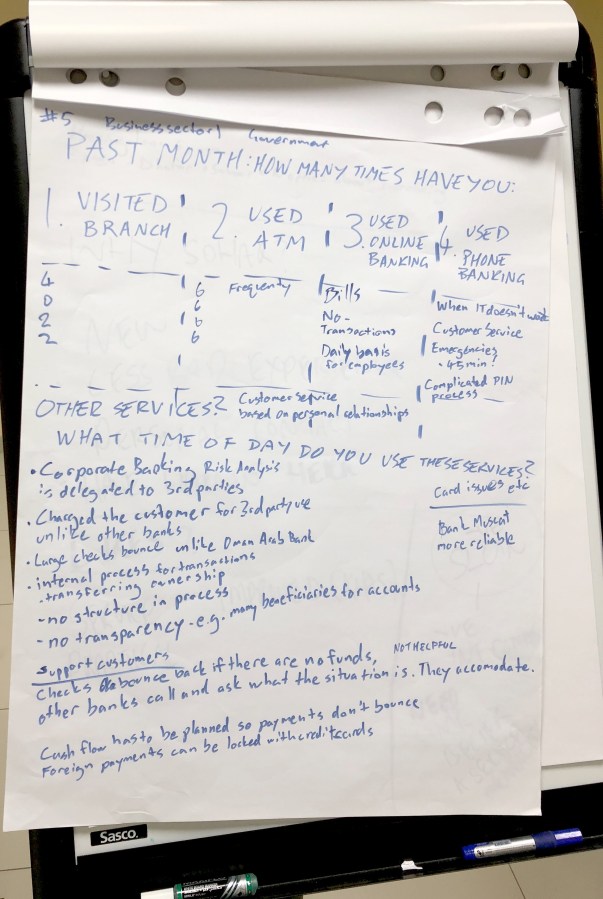 #5 Business sector Government
PAST MONTH: HOW MANY TIMES HAVE YOU:
1. VISITED BRANCH
2. USED ATM
3. USED ONLINE BANKING
4. USED PHONE BANKING
4
0
2
2
6
6
6
6
Frequently
Bills
No-
Transactions
Daily basis
for employees
When IT doesn't work
Customer Service
Emergencies
- 45 min!
Complicated PIN
process
OTHER SERVICES?
Customer service
based on personal relationships
WHAT TIME OF DAY DO YOU USE THESE SERVICES?
• Corporate Banking Risk Analysis
is delegated to 3rd parties
• Charged the customer for 3rd party use
unlike other banks
• Large checks bounce unlike Oman Arab Bank
• internal process for transactions
- transferring ownership
- no structure in process
- no transparency - e.g. many beneficiaries for accounts
Card issues etc
Bank Muscat
more reliable
Support customers
NOT HELPFUL
Checks bounce back if there are no funds,
other banks call and ask what the situation is. They accomodate.
Cash flow has to be planned so payments don't bounce
Foreign payments can be locked with creditcards
Sasco.